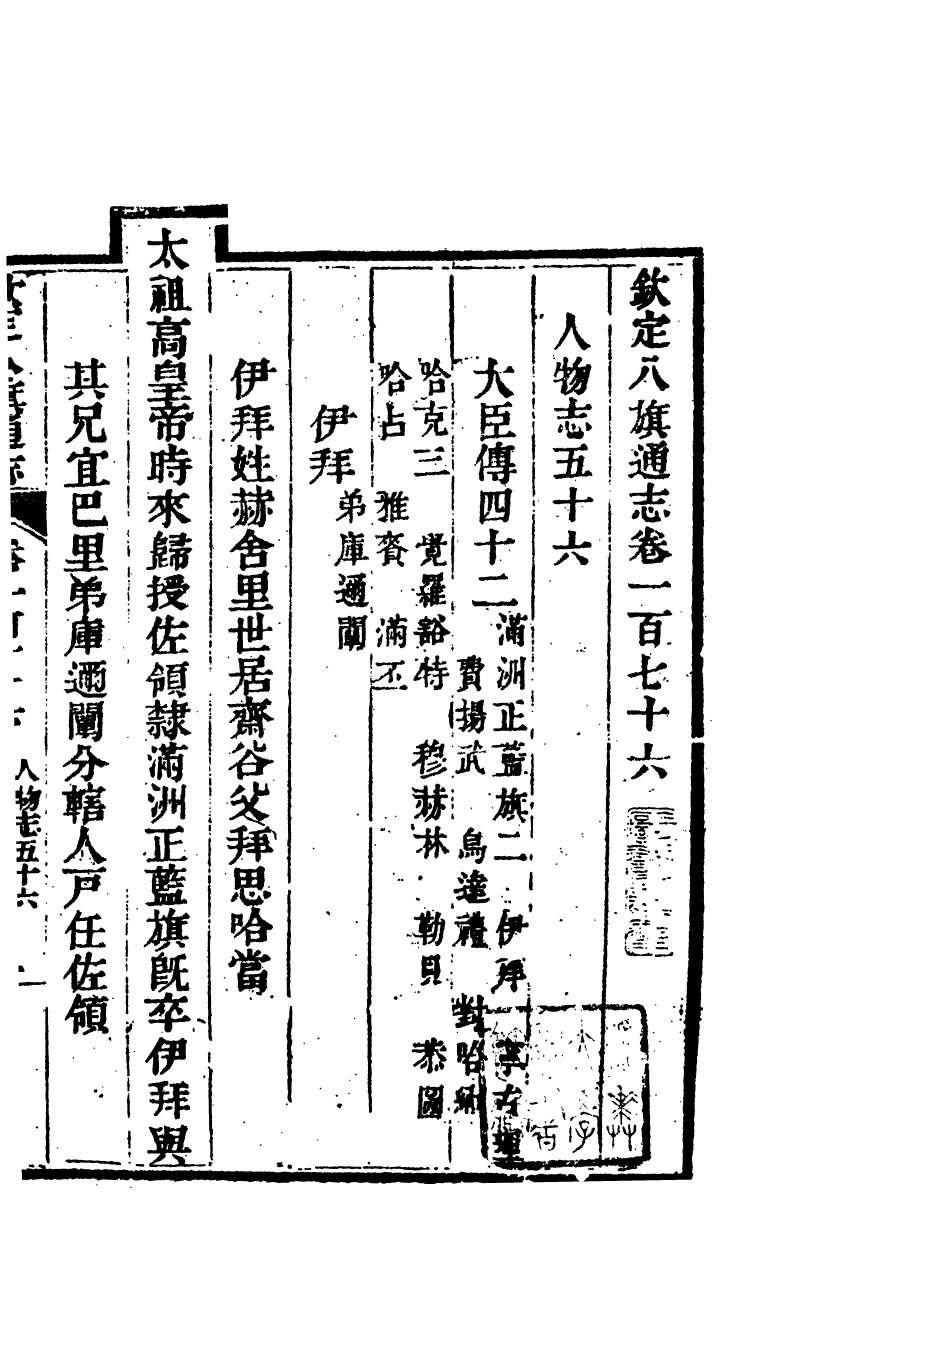 欽定八旗通志卷一百七十六
人物志五十六
大臣傳四十二
滿洲正藍旗二 伊拜 古理
費揚武 烏達禮 對哈納
哈克三 覺羅豁特 穆赫林 勒貝 恭圖
哈占 雅賚 滿丕
伊拜
弟庫邇闡
伊拜姓赫舍里世居齋谷父拜思哈當
太祖高皇帝時來歸授佐領隸滿洲正藍旗旣卒伊拜與
其兄宜巴里弟庫邇闡分轄人戸任佐領
人物志五十六 一